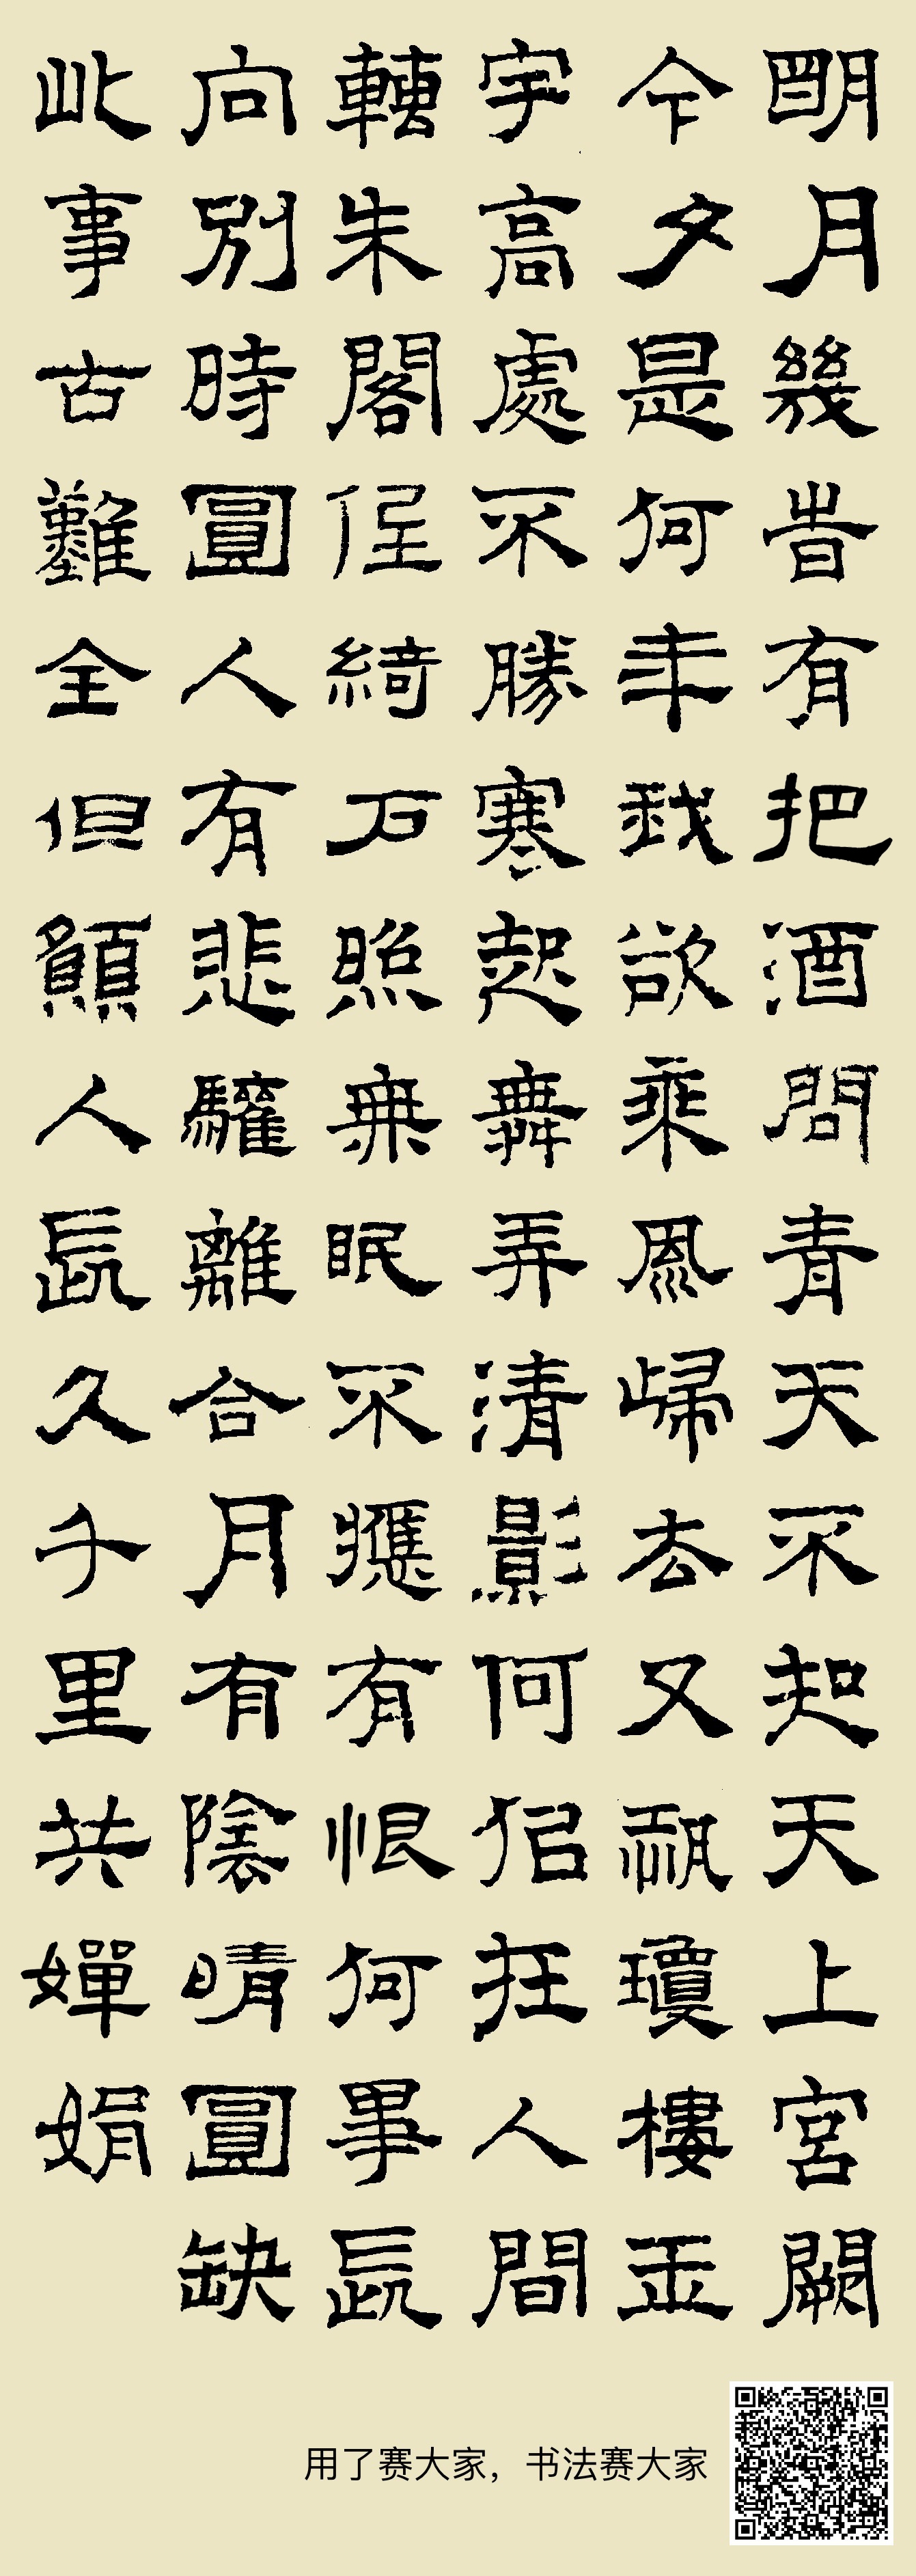 明月幾旹有把酒問青天不知天上宮闕
今夕是何年我欲乘風歸去又恐瓊樓玉
宇高處不勝寒起舞弄清影何佀在人間
轉朱閣低綺戶照無眠不應有恨何事長
向別時圓人有悲驩離合月有陰晴圓缺
此事古難全但願人長久千里共嬋娟
用了赛大家，书法赛大家